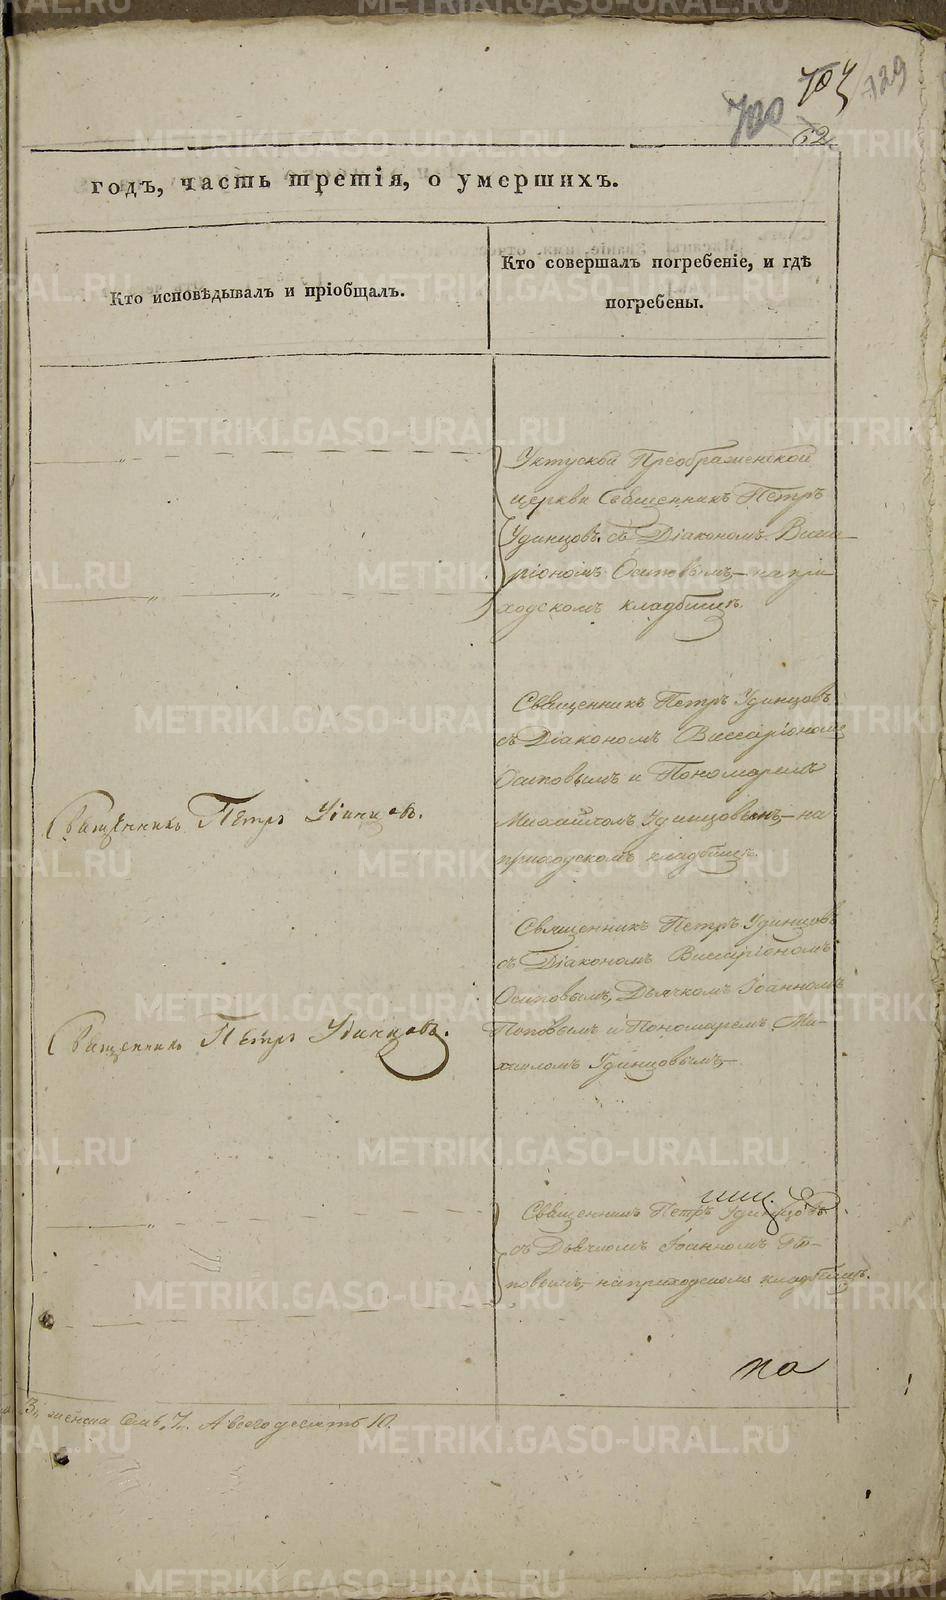 704
729
700
62
годъ, часть третія, о умершихъ.
Кто исповѣдывалъ и пріобщалъ.
Кто совершалъ погребеніе, и гдѣ
погребены.
Уктуской Преображенской
церкви Священникъ Петръ
Удинцовъ съ Діакономъ Висса-
ріономъ Осиповымъ, на при
ходскомъ кладбищѣ.
Священникъ Петръ Удинцовъ
съ Діакономъ Виссаріономъ
Осиповымъ и Пономаремъ
Михаиломъ Удинцовымъ, на
приходскомъ кладбищѣ.
Священникъ Петръ Удинцовъ.
Священникъ Петръ Удинцовъ
съ Діакономъ Виссаріономъ
Осиповымъ, Дьячкомъ Іоанномъ
Поповымъ и Пономаремъ Ми-
хаиломъ Удинцовымъ,
Священникъ Петръ Удинцовъ.
Священникъ Петръ Удинцовъ
съ Дьячкомъ Іоанномъ По-
повымъ, на приходскомъ кладбищѣ.
на
3, женска Семь, 7. А всего десять 10.
METRIKI.GASO-URAL.RU